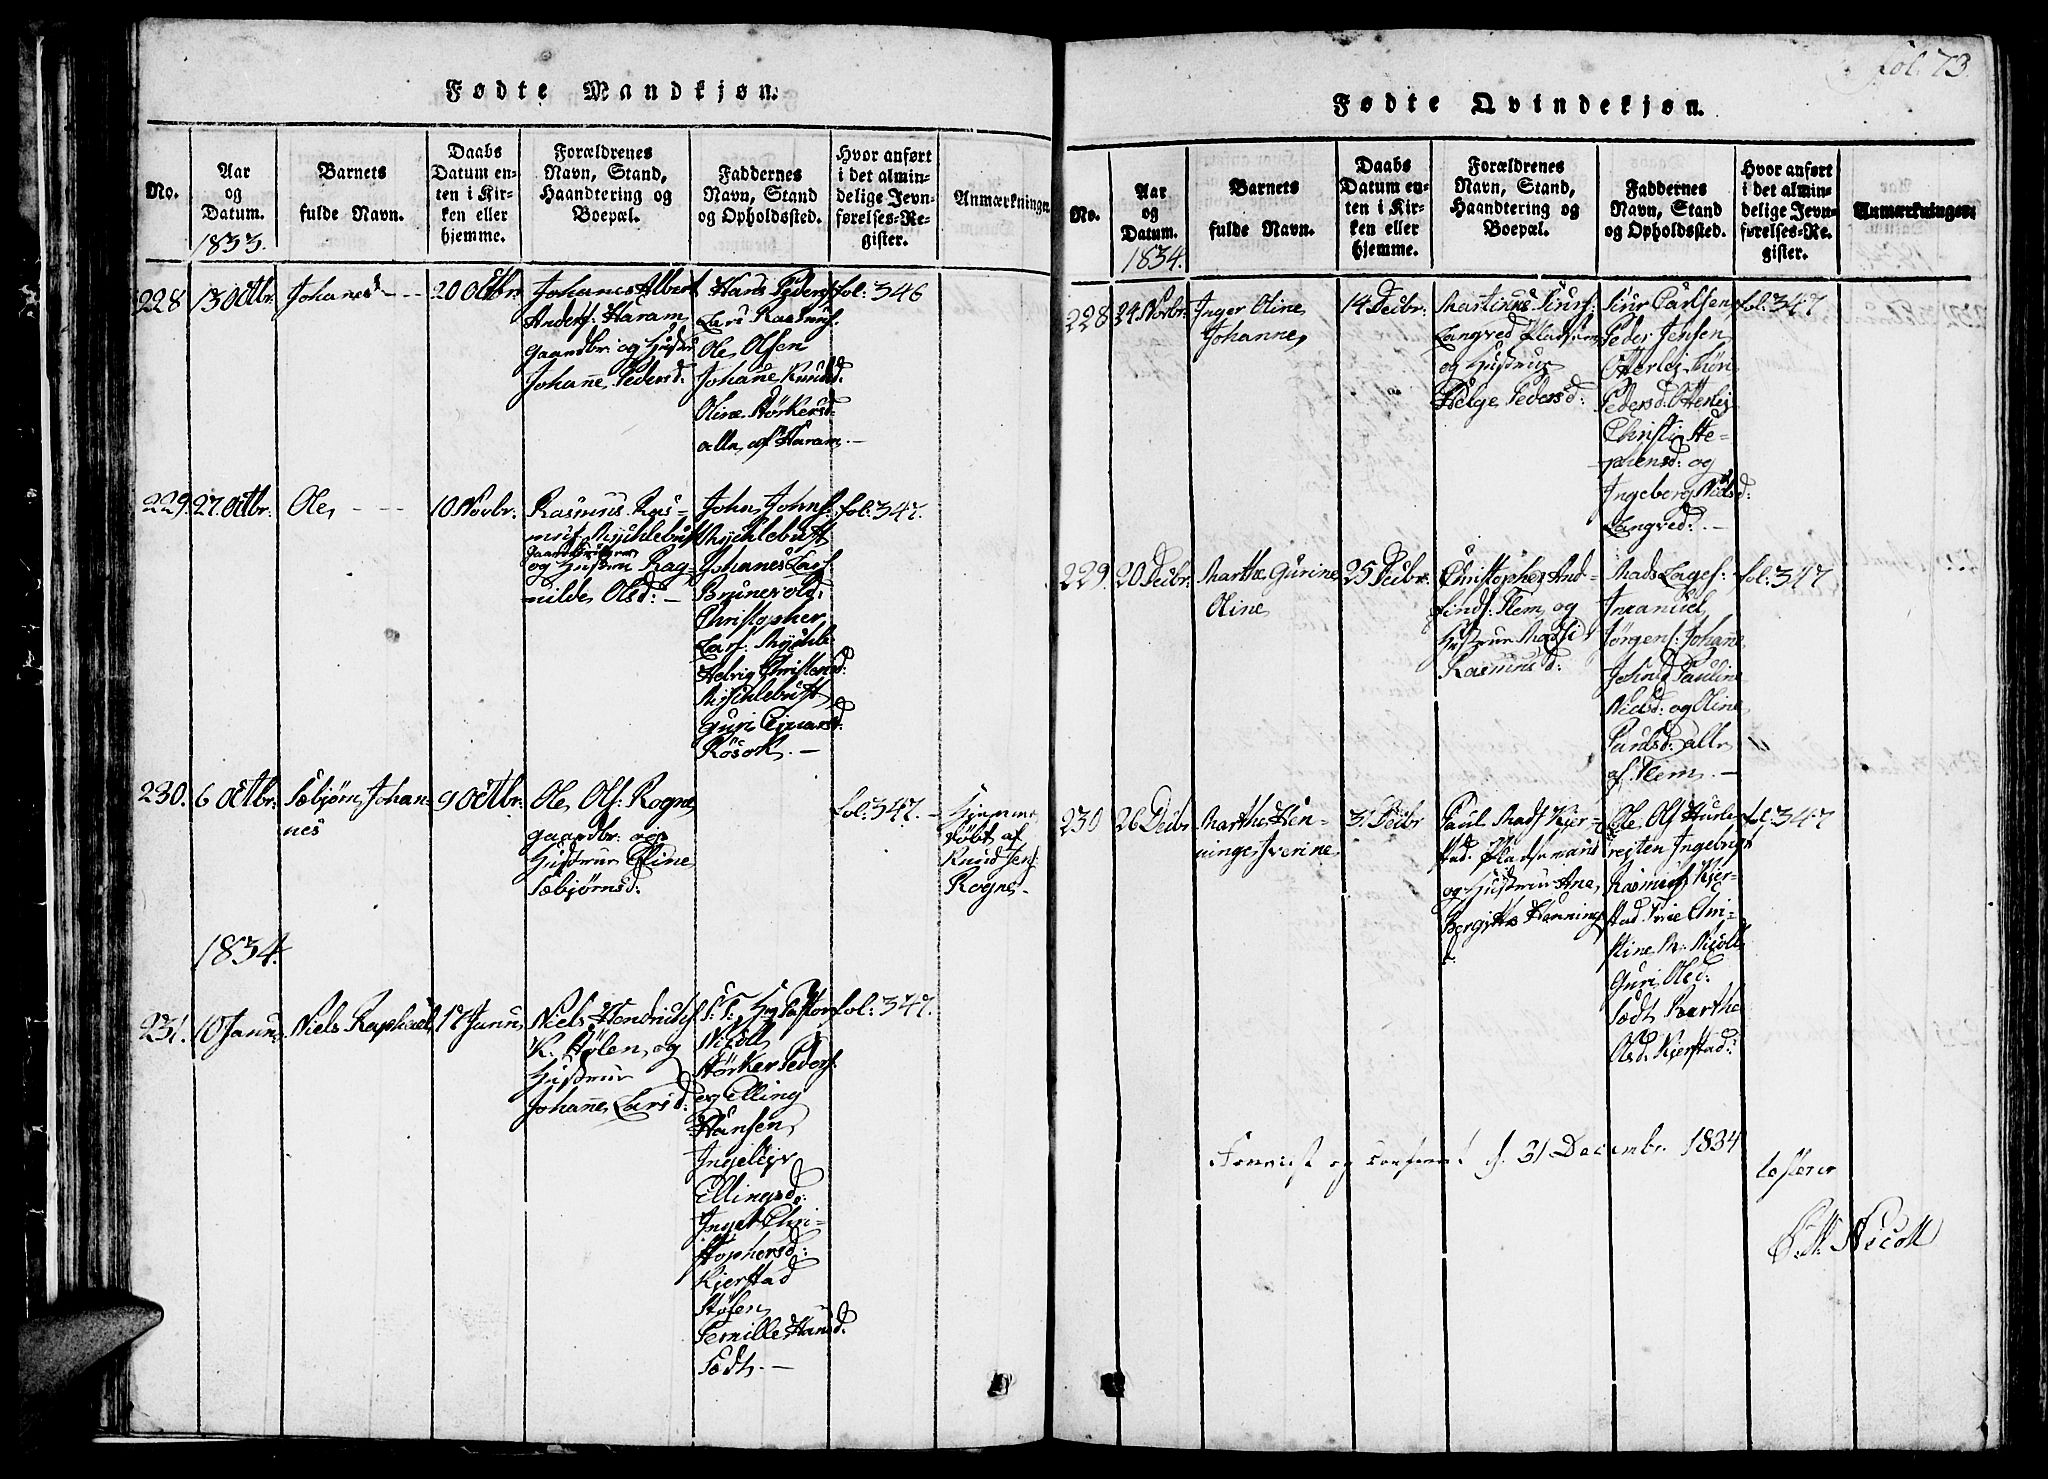 Fødte Mandkjøn.
No.
Aar
og
Datum.
1833.
Barnets
fulde Navn.
Daabs
Datum en-
ten i Kir-
ken eller
hjemme.
Forældrenes
Navn, Stand,
Haandtering og
Boepæl.
Faddernes
Navn, Stand
og Opholdssted.
Hvor anført
i det almin-
delige Jevn-
førelses-Re-
gister.
Anmærkninger
228
13 Octbr.
Johanes
20 Octbr.
Johanes Albert
Anders: Haram
gaardbr: og Hustru
Johanne Pedersd:
Hans Peders:
Lars Rasmus:
Ole Olsen
Johane Knudsd:
Oline Størkersd:
alle af Haram.
fol: 346
229.
27. Octbr:
Ole
10 Novbr.
Rasmus Ras-
mus: Myhlebust
gaardbruger
og Hustru Rag-
nilde Olsd:
John Johns:
Myhlebust
Johanes Lars:
Brunevold
Christopher
Lars: Myhleb:
Helvig Christensd:
Myhlebust
Guri Ejnarsd:
Røsok.
fol. 347.
230.
6 Octbr:
Sæbjørn Johan-
nes
9 Octbr:
Ole Ols: Rogne
gaardbr: og
Hustrue Eline
Sæbjørnsd:
fol: 347.
Hjemme
døbt af
Knud Jens:
Rogne
1834.
231.
10 Janu:
Niels Raphael
17 Janu:
Niels Hendrichs:
K. Hølen og
Hustrue
Johane Larsd:
S: T: Hr Pastor
Nicoll
Størker Peders:
og Elling
Hansen
Ingeleiv
Ellingsd:
Inger Chri-
stophersd:
Kjerstad
Støsen
Pernille Hansd:
Sødt.
fol: 347.
fol. 73.
Fødte Qvindekjøn.
No.
Aar
og
Datum.
1834.
Barnets
fulde Navn.
Daabs
Datum en-
ten i Kir-
ken eller
hjemme.
Forældrenes
Navn, Stand,
Haandtering og
Boepæl.
Faddernes
Navn, Stand
og Opholdssted.
Hvor anført
i det almin-
delige Jevn-
førelses-Re-
gister.
Anmærkninger.
228
24 Novbr:
Inger Oline
Johanne
14 Decbr:
Martinus Siurs:
Langved Pladsem
og Hustrue
Helge Pedersd:
Siur Carlsen
Peder Jensen
Otterlej
Pedersd: Otterlej
Christi Ste-
phensd: og
Ingeberg Nielsd:
Langved.
fol: 347
229.
20 Decbr:
Marthe Gurine
Oline
25 Decbr:
Christopher And-
finds: Flem og
Hustrue Massi
Rasmusd:
Mads Lages:
Imanuel
Jørgens: Johane
Johnsd: Pauline
Nielsd: og Oline
Paulsd: alle
af Flem.
fol: 347
230
26 Decbr
Marthe Hen-
ninge Sverine
31. Decbr
Paul Mads: Kjer-
stad Pladsemand
og Hustrue Ane
Bergitte Hennings
d:
Ole Ols: Hurle-
rejten Ingebrigt
Rasmus: Kjer-
stad. Frue Chri-
stine M: Nicoll
Guri Olsd:
Sødt Marthe
Olsd. Kjerstad:
fol: 347
og d. 31 Decembr. 1834
testerer
Nicoll